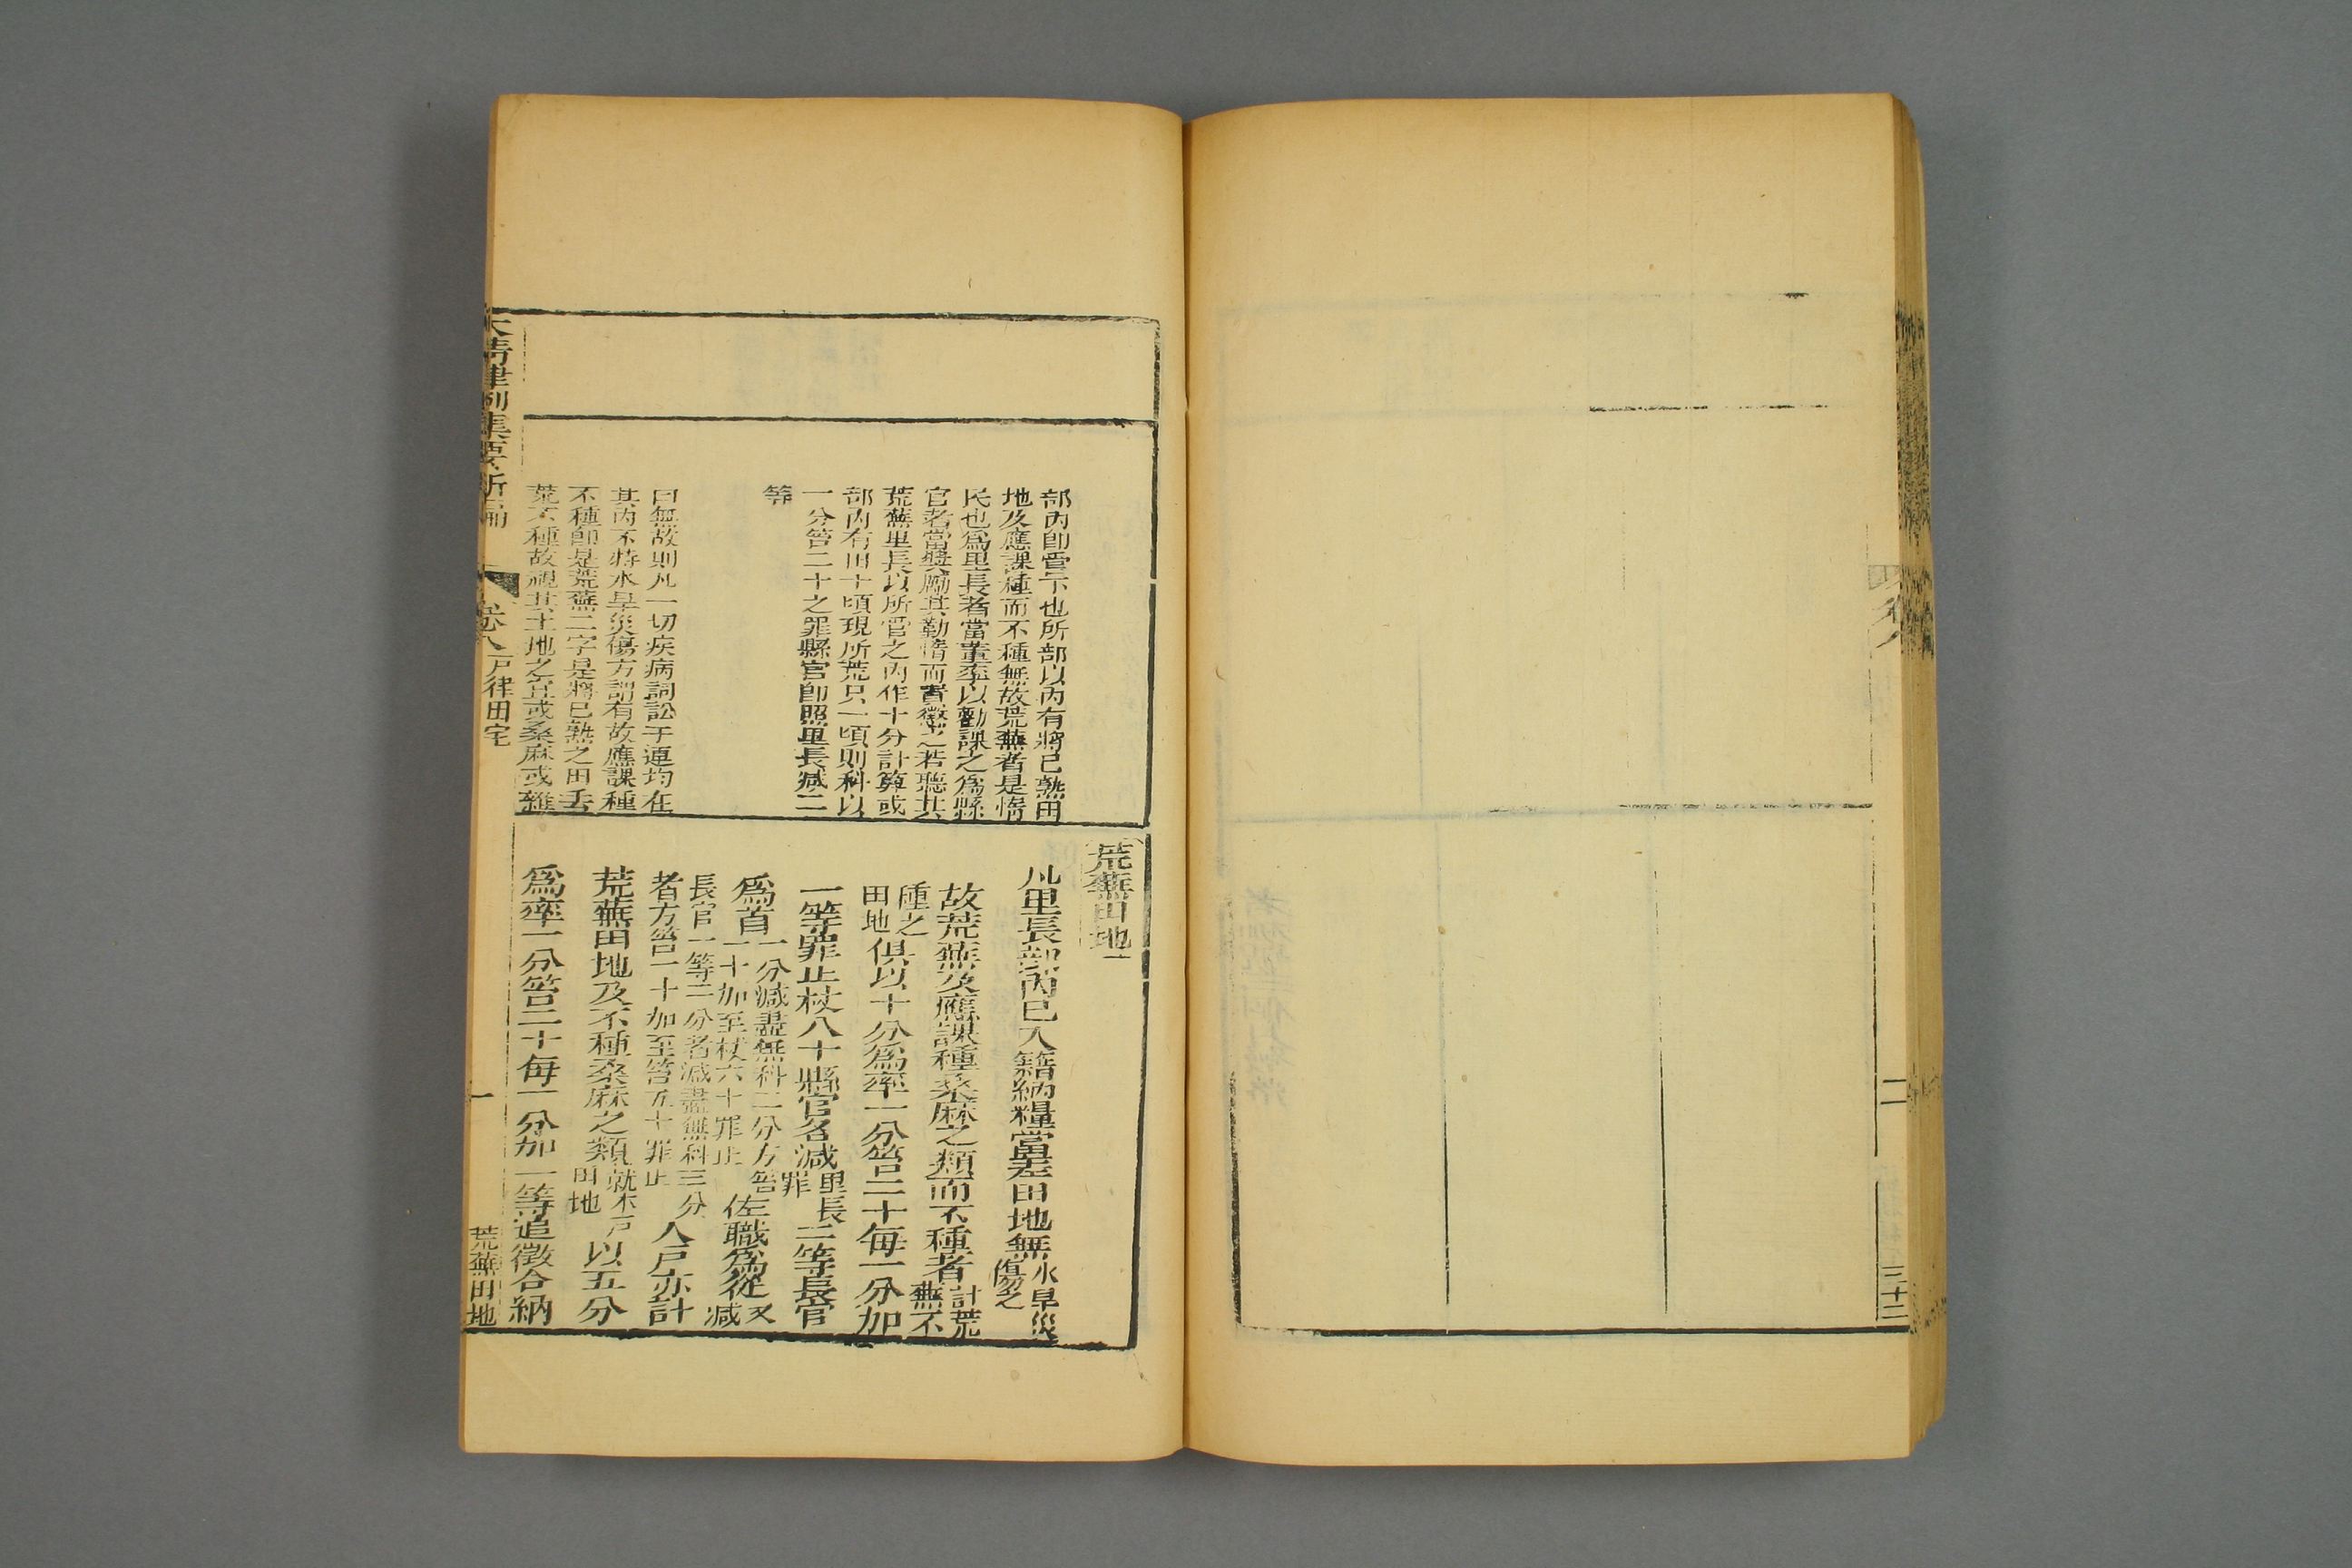 三十二
部內卽管下也所部以內有將已熟田
地及應課種而不種無故荒蕪者是惰
民也爲里長者當董率以勸課之爲縣
官者當奬勵其勤惰而責懲之若聽其
荒蕪里長以所管之內作十分計算或
部內有田十頃現所荒只一頃則科以
一分笞二十之罪縣官卽照里長減二
等
曰無故則凡一切疾病詞訟干連均在
其內不特水旱災傷方謂有故應課種
不種卽是荒蕪二字是將已熟之田丟
荒不種故視其土地之宜或桑麻或雜
荒蕪田地一
凡里長部內已入籍納糧當差田地無水旱災
傷之
故荒蕪及應課種桑麻之類而不種者計荒
蕪不
種之
田地俱以十分爲率一分笞二十每一分加
一等罪止杖八十縣官各減里長
罪二等長官
爲首一分減盡無科二分方笞
一十加至杖六十罪止佐職爲從又
減
長官一等二分者減盡無科三分
者方笞一十加至笞五十罪止人戶亦計
荒蕪田地及不種桑麻之類就本戶
田地以五分
爲率一分笞二十每一分加一等追徵合納
大清律例集要新編
卷八
戶律田宅
一
荒蕪田地